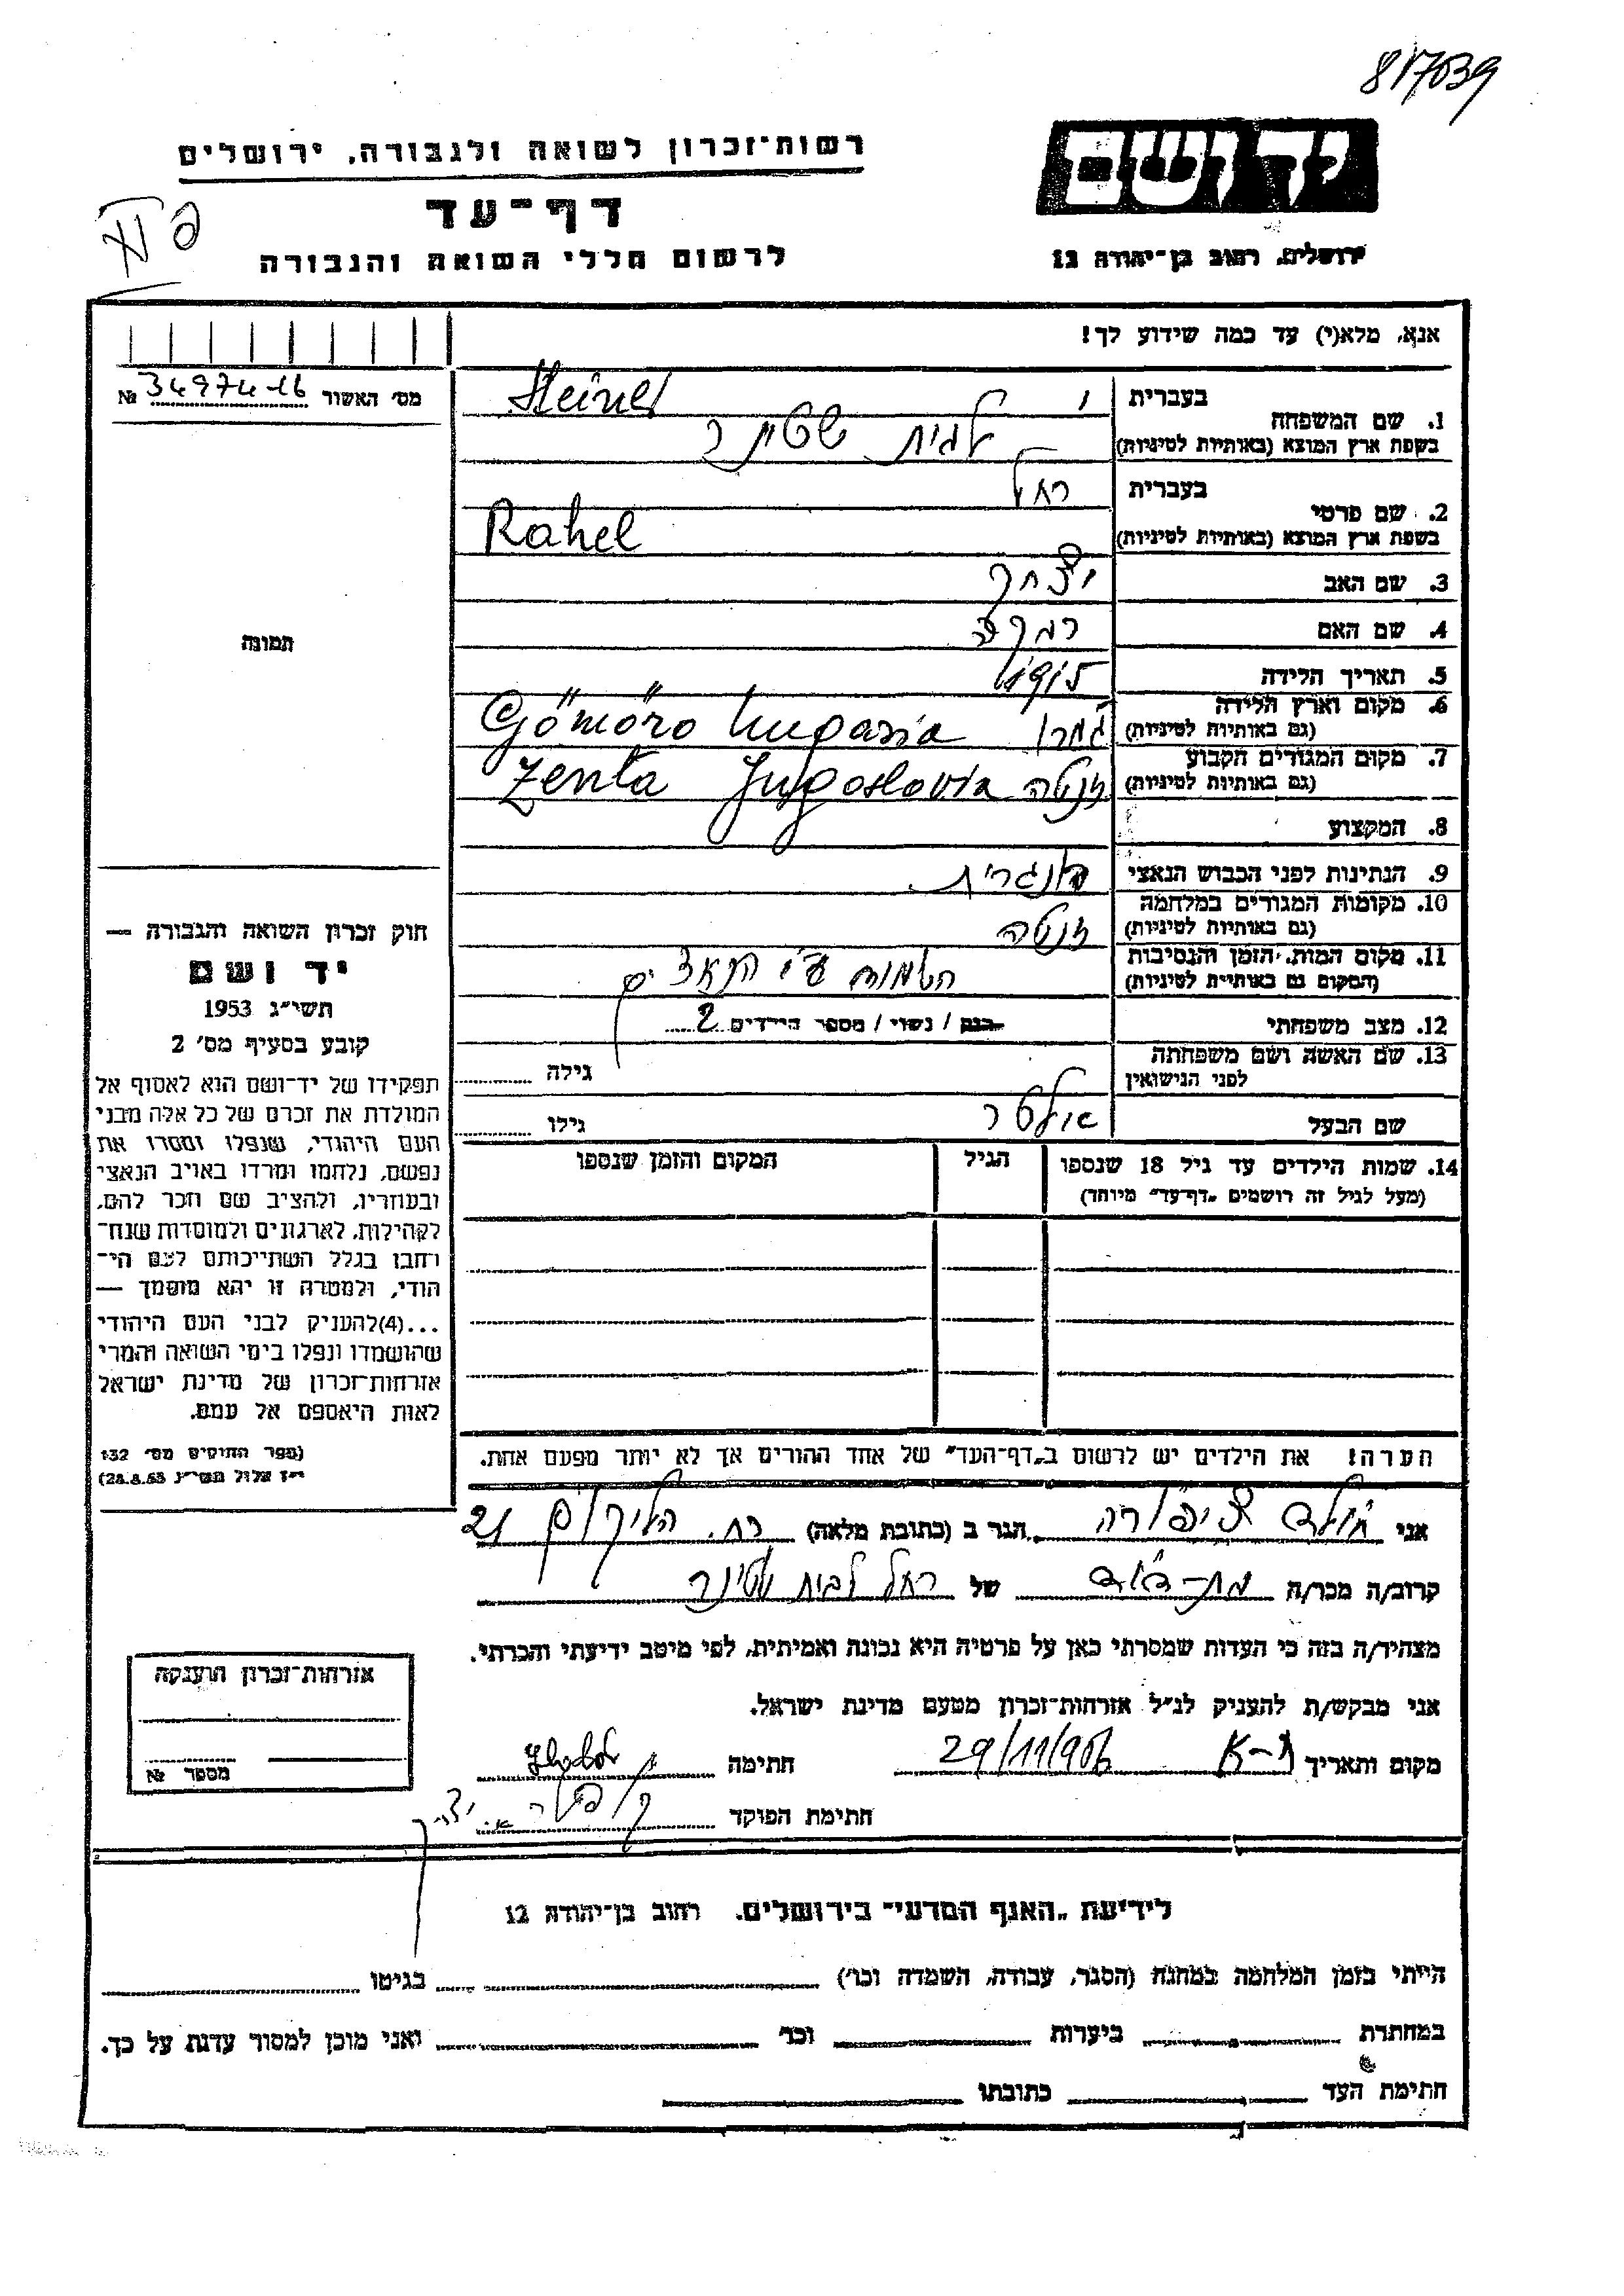 817039
יד ושם
רשות־זכרון לשואה ולגבורה, ירושלים
דף־עד
לרשום חללי השואה והגבורה
ירושלים, רחוב בן־יהודה 12
אנא, מלא(י) עד כמה שידוע לך!
מס׳ האשור 34974-16 №
1. שם המשפחה בעברית
Steiner
בשפת ארץ המוצא (באותיות לטיניות) לבית שטינר
2. שם פרטי בעברית רחל
בשפת ארץ המוצא (באותיות לטיניות) Rahel
3. שם האב יצחק
4. שם האם רבקה
5. תאריך הלידה 1915
6. מקום וארץ הלידה
(גם באותיות לטיניות) Gömörő Hungaria
7. מקום המגורים הקבוע
(גם באותיות לטיניות) זנטה Zenta Jugoslovia
8. המקצוע
9. הנתינות לפני הכבוש הנאצי הונגרית
10. מקומות המגורים במלחמה
(גם באותיות לטיניות) זנטה
11. מקום המות, הזמן והנסיבות
(המקום גם באותיות לטיניות) הושמדה ע״י הנאצים
12. מצב משפחתי רווק / נשוי / מספר הילדים 2
13. שם האשה ושם משפחתה
לפני הנישואין גילה
שם הבעל גילו
14. שמות הילדים עד גיל 18 שנספו
(מעל לגיל זה רושמים „דף־עד״ מיוחד)
הגיל
המקום והזמן שנספו
הערה! את הילדים יש לרשום ב„דף־העד״ של אחד ההורים אך לא יותר מפעם אחת.
תמונה
חוק זכרון השואה והגבורה —
יד ושם
תשי״ג 1953
קובע בסעיף מס׳ 2
תפקידו של יד־ושם הוא לאסוף אל
המולדת את זכרם של כל אלה מבני
העם היהודי, שנפלו ומסרו את
נפשם, נלחמו ומרדו באויב הנאצי
ובעוזריו, ולהציב שם וזכר להם,
לקהילות, לארגונים ולמוסדות שנח־
רבו בגלל השתייכותם לעם הי־
הודי, ולמטרה זו יהא מוסמך —
...(4)להעניק לבני העם היהודי
שהושמדו ונפלו בימי השואה והמרי
אזרחות־זכרון של מדינת ישראל
לאות היאספם אל עמם.
(ספר החוקים מס׳ 132
י״ז אלול תשי״ג 28.8.53)
אני ציפורה הגר ב (כתובת מלאה) רח. 21
קרוב/ה מכר/ה של רחל לבית שטינר
מצהיר/ה בזה כי העדות שמסרתי כאן על פרטיה היא נכונה ואמיתית, לפי מיטב ידיעתי והכרתי.
אני מבקש/ת להעניק לנ״ל אזרחות־זכרון מטעם מדינת ישראל.
מקום ותאריך ת-א חתימה
חתימת הפוקד
אזרחות־זכרון הוענקה
מספר №
לידיעת „האגף המדעי״ בירושלים, רחוב בן־יהודה 12
הייתי בזמן המלחמה במחנה (הסגר, עבודה, השמדה וכו׳) בגיטו
במחתרת ביערות וכו׳ ואני מוכן למסור עדות על כך.
חתימת העד כתובתו